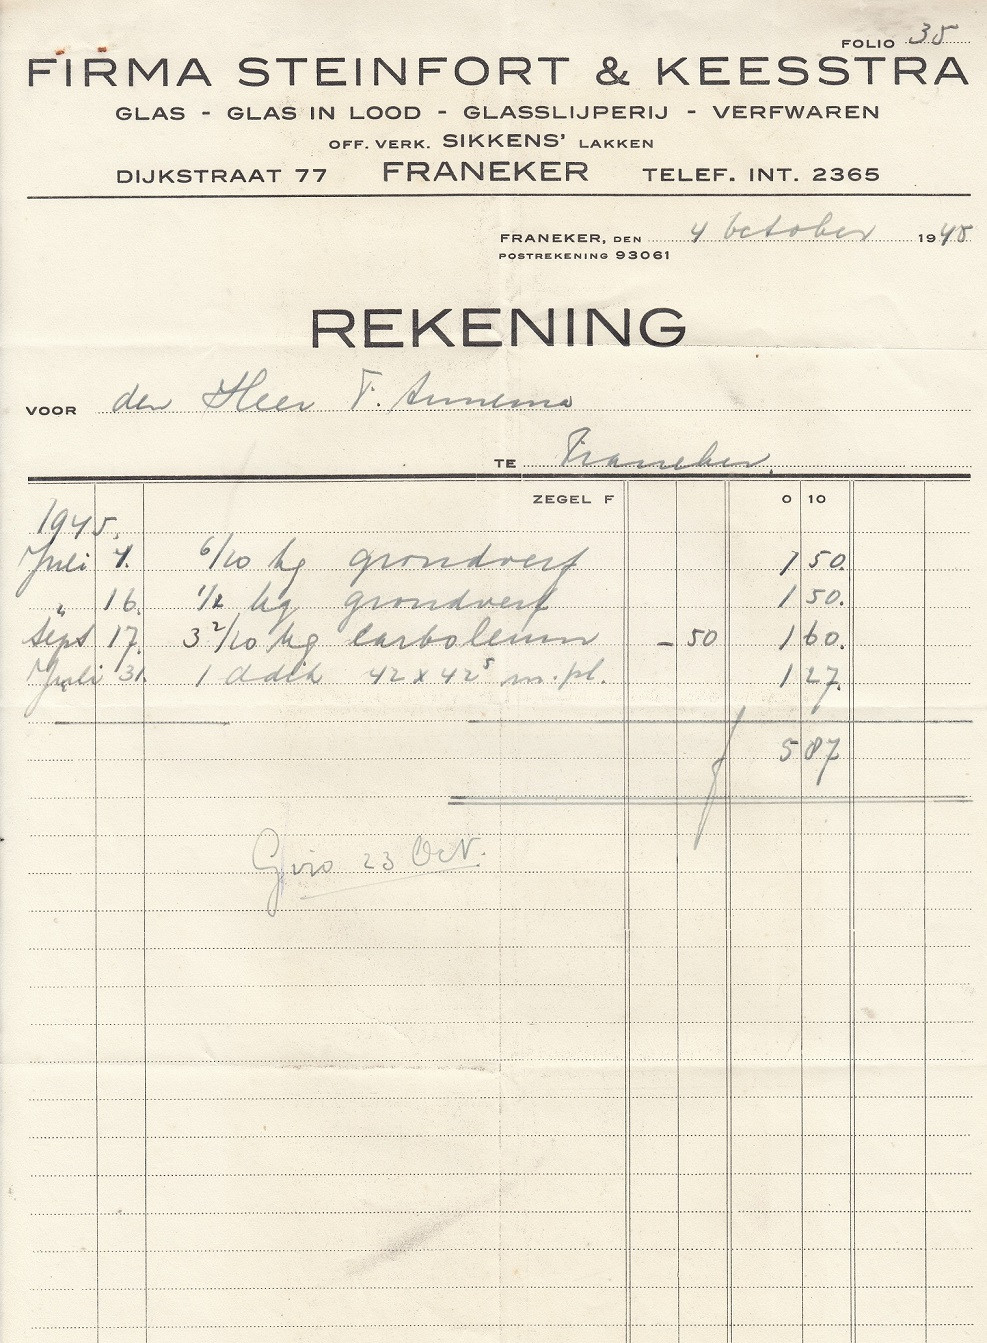 FOLIO 35
FIRMA STEINFORT & KEESSTRA
GLAS - GLAS IN LOOD - GLASSLIJPERIJ - VERFWAREN
OFF. VERK. SIKKENS' LAKKEN
DIJKSTRAAT 77 FRANEKER TELEF. INT. 2365
FRANEKER, DEN 4 October 1945
POSTREKENING 93061
REKENING
VOOR den Heer F. Annema
TE Franeker.
ZEGEL F 0 10
1945.
Juli 4. 6/10 kg grondverf 1 50.
" 16. 1/2 kg grondverf 1 50.
Sept 17. 3 2/10 kg Carboleum - 50 1 60.
Juli 31. 1 42 x 42⁵ m. pl. 1 27.
f 5 87
Giro 23 Oct.